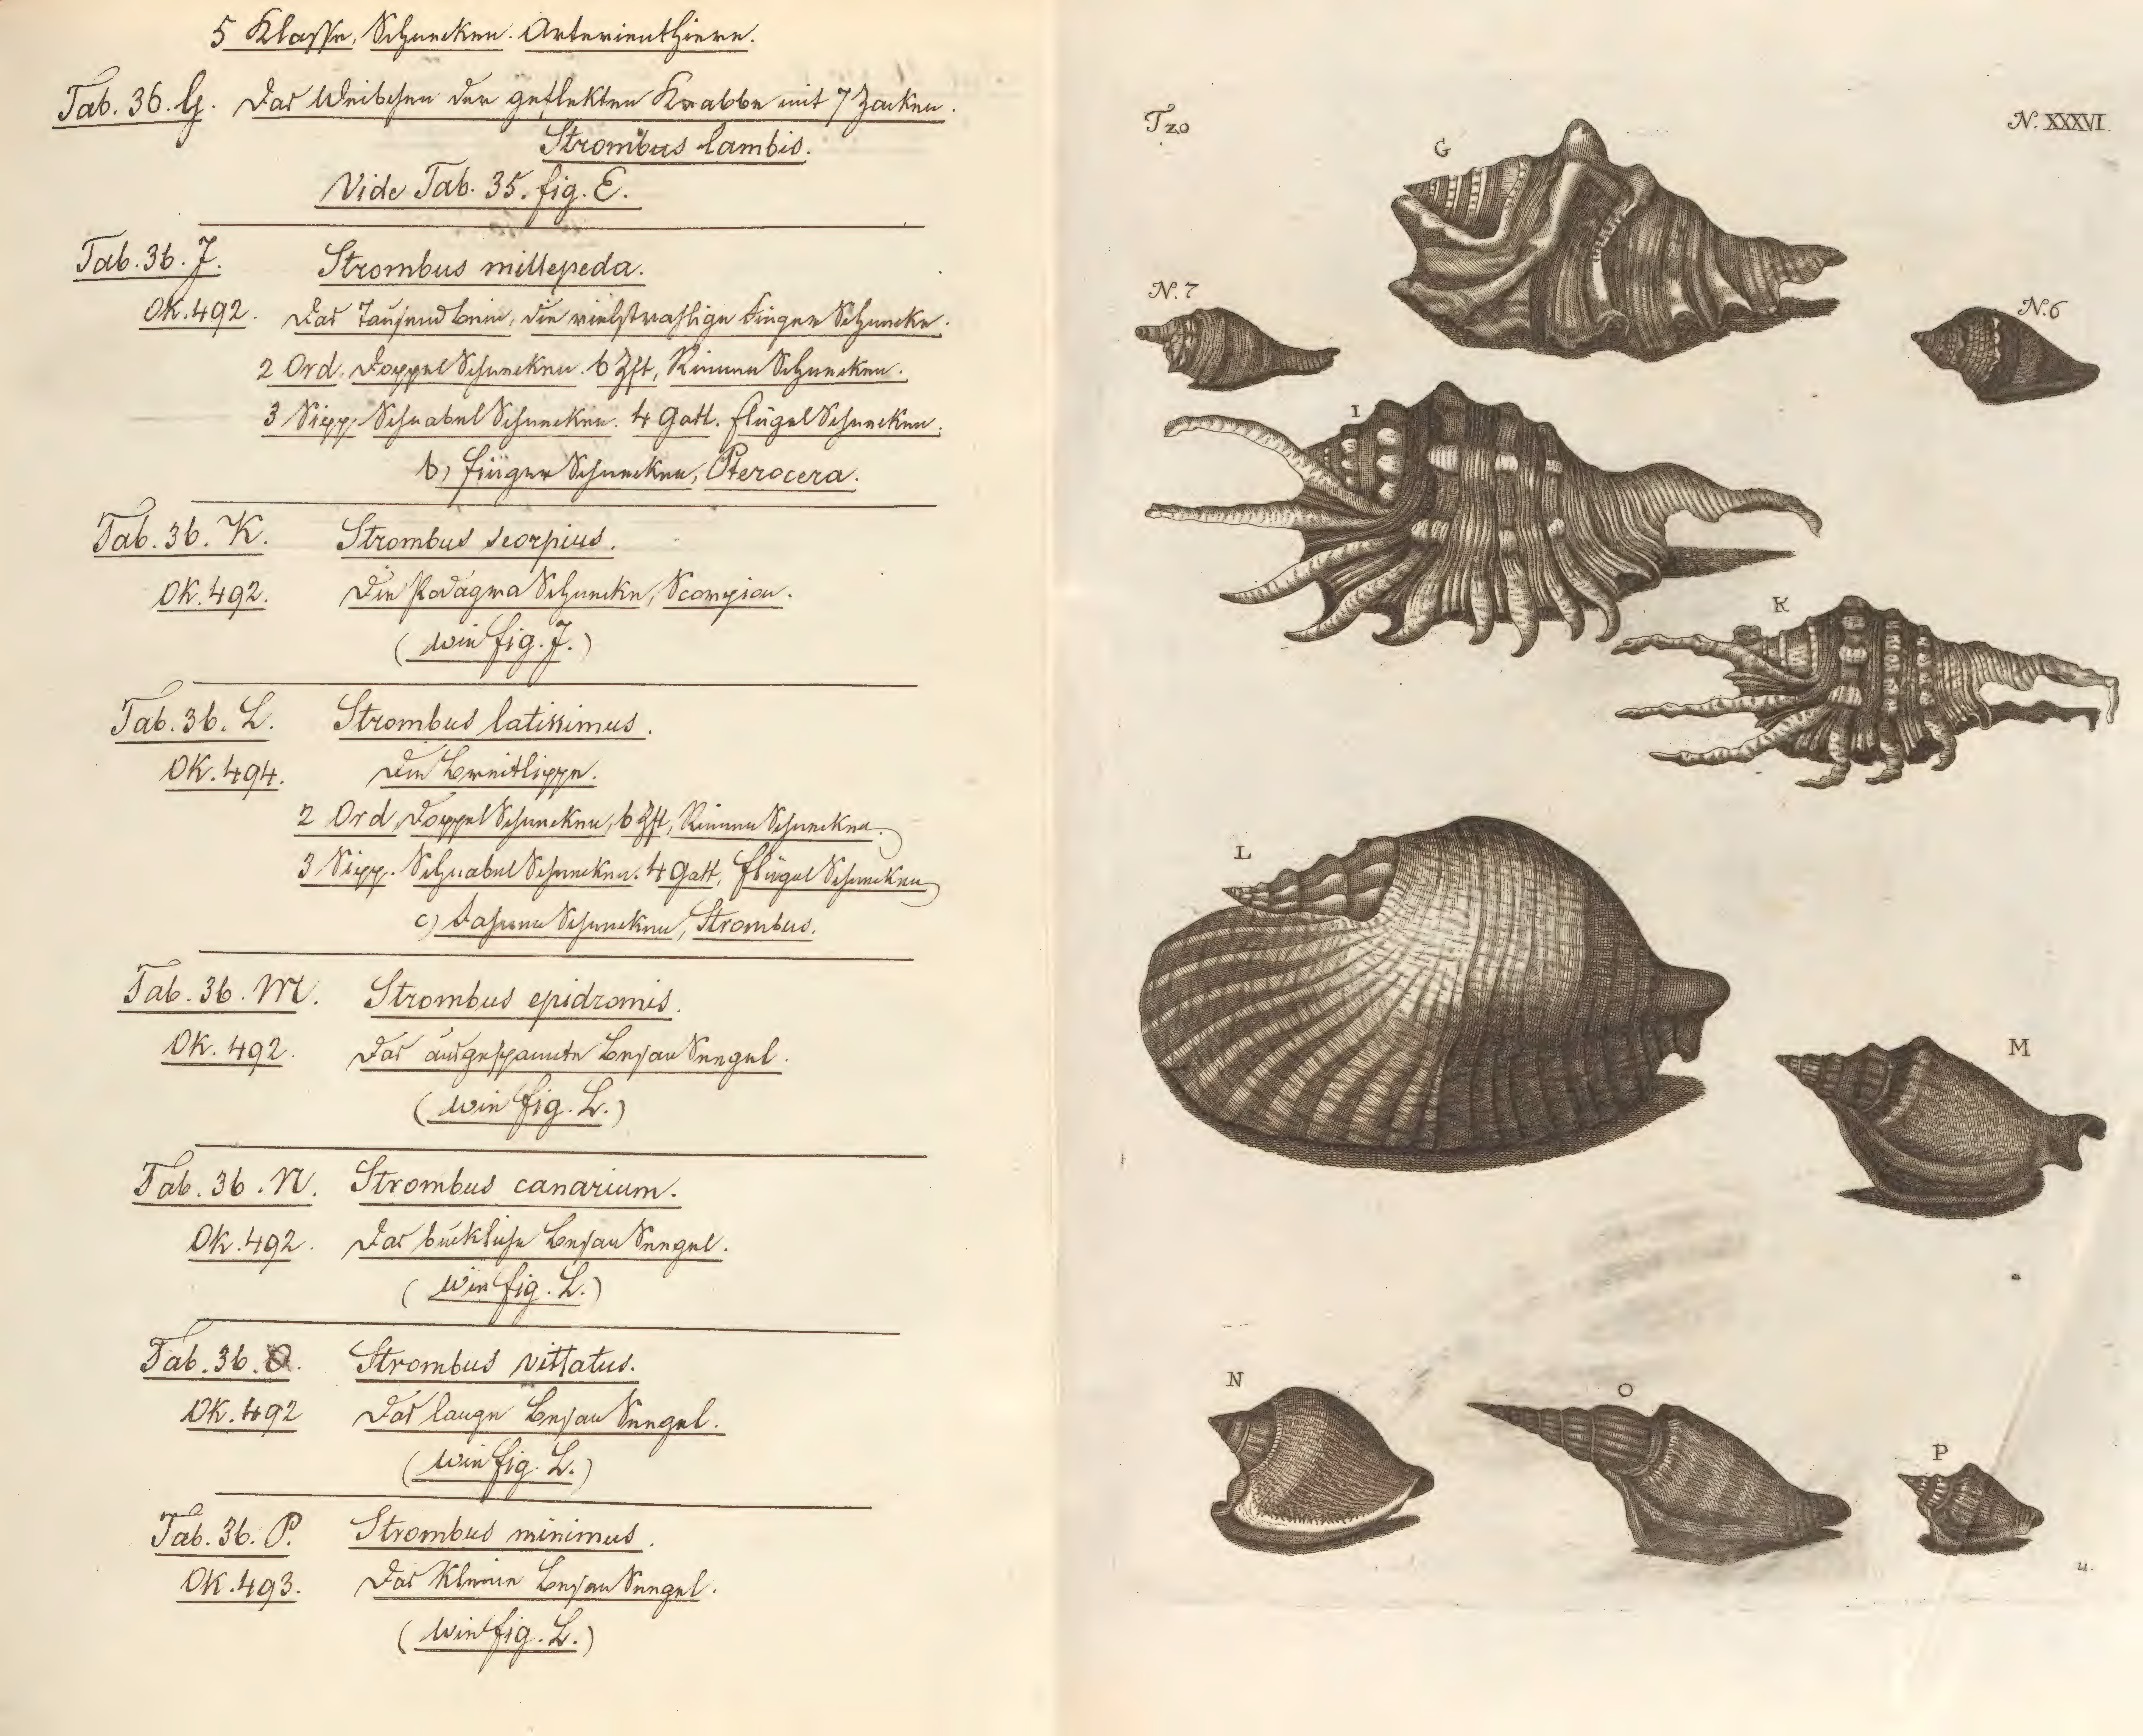 5 Klasse, Schnecken. Arterienthiere.
Tab. 36. G. Das Weibchen der geflekten Krabbe mit 7 Zacken.
Strombus lambis.
Vide Tab. 35. fig. E.
Tab. 36. J. Strombus millepeda.
OK. 492. Das Tausendbein, die vielstrahlige Finger Schnecke.
2 Ord. Doppel Schnecken. 6 Zft, Rinnen Schnecken.
3 Sipp. Schnabel Schnecken. 4 Gatt. Flügel Schnecken.
b) Finger Schnecken, Pterocera.
Tab. 36. K. Strombus scorpius.
OK. 492. Die Podagra Schnecke, Scorpion.
(wie fig. J.)
Tab. 36. L. Strombus latissimus.
OK. 494. Die Breitlippe.
2 Ord, Doppel Schnecken, 6 Zft, Rinnen Schnecken.
3 Sipp. Schnabel Schnecken. 4 Gatt, Flügel Schnecken
c) Fahnen Schnecken, Strombus.
Tab. 36. M. Strombus epidromis.
OK. 492. Das ausgespannte Besan Seegel.
(wie fig. L.)
Tab. 36. N. Strombus canarium.
OK. 492. Das buckliche Besan Seegel.
(wie fig. L.)
Tab. 36. O. Strombus vittatus.
OK. 492 Das lange Besan Seegel.
(wie fig. L.)
Tab. 36. P. Strombus minimus.
OK. 493. Das Kleine Besan Seegel.
(wie fig. L.)
T20
N. XXXVI.
G
N. 7
N. 6
I
K
L
M
N
O
P
u.